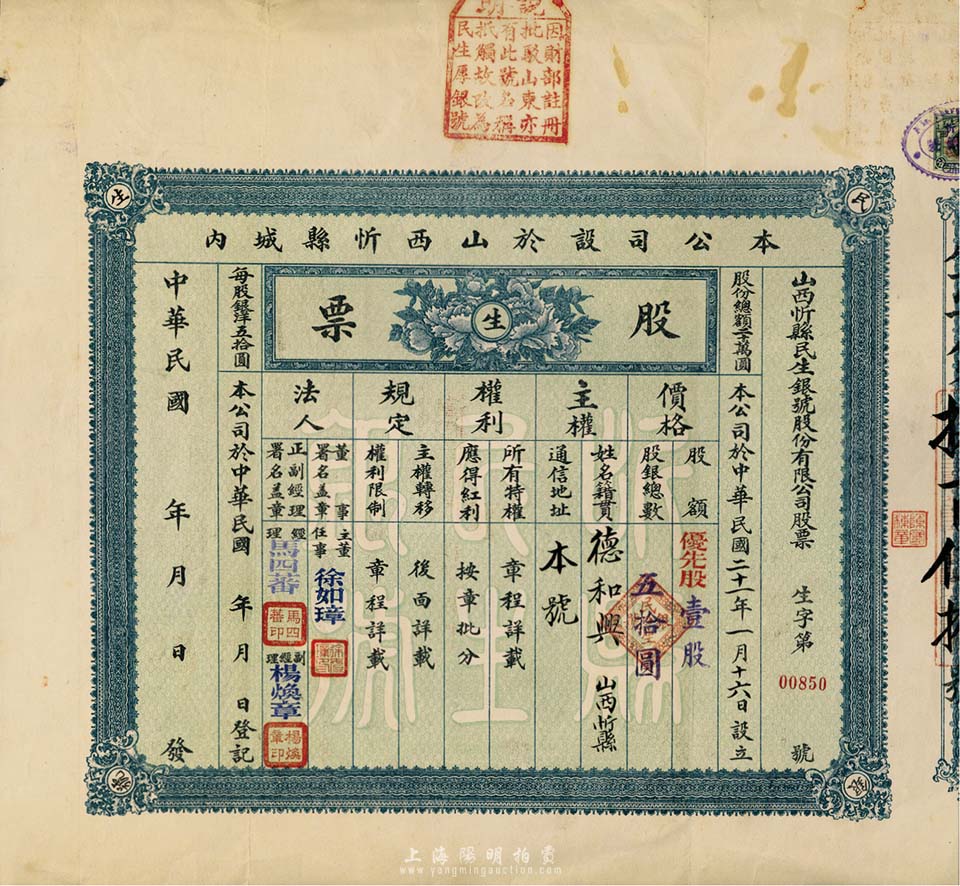 說明
因財部註冊
批駁山東亦
有此號名稱
抵觸故改為
民生厚銀號
本公司設於山西忻縣城內
山西忻縣民生銀號股份有限公司股票 生字第00850號
股份總額二十萬圓
股票
生
每股銀洋五拾圓
本公司於中華民國二十一年一月十六日設立
價格
股額 優先股 壹股
股銀總數 五拾圓
主權
姓名籍貫 德和興 山西忻縣
通信地址 本號
權利
所有特權 章程詳載
應得紅利 按章批分
規定
主權轉移 後面詳載
權利限制 章程詳載
法人
董事署名蓋章 主任董事 徐如璋
正副經理署名蓋章 經理 馬四蕃 馬四蕃印 副經理 楊煥章 楊煥章印
本公司於中華民國 年 月 日登記
中華民國 年 月 日 發
民
生
銀
號
上海陽明拍賣
www.yangmingauction.com